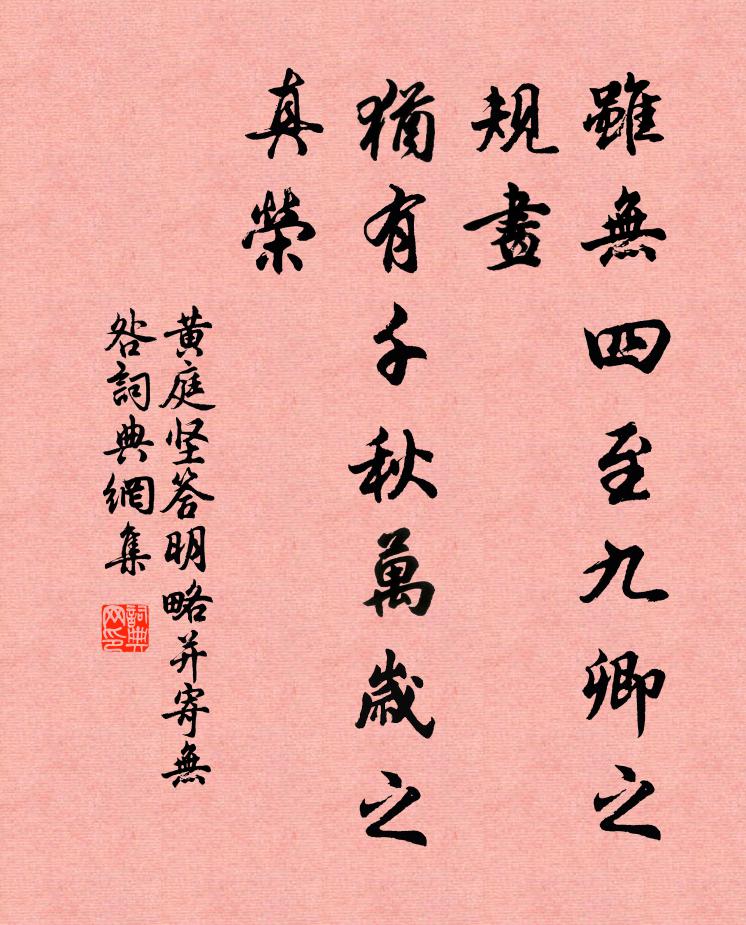 雖無四至九卿之
規畫
猶有千秋萬歲之
真榮
黄庭坚答明略并寄無
咎詞典網集
詞典网印